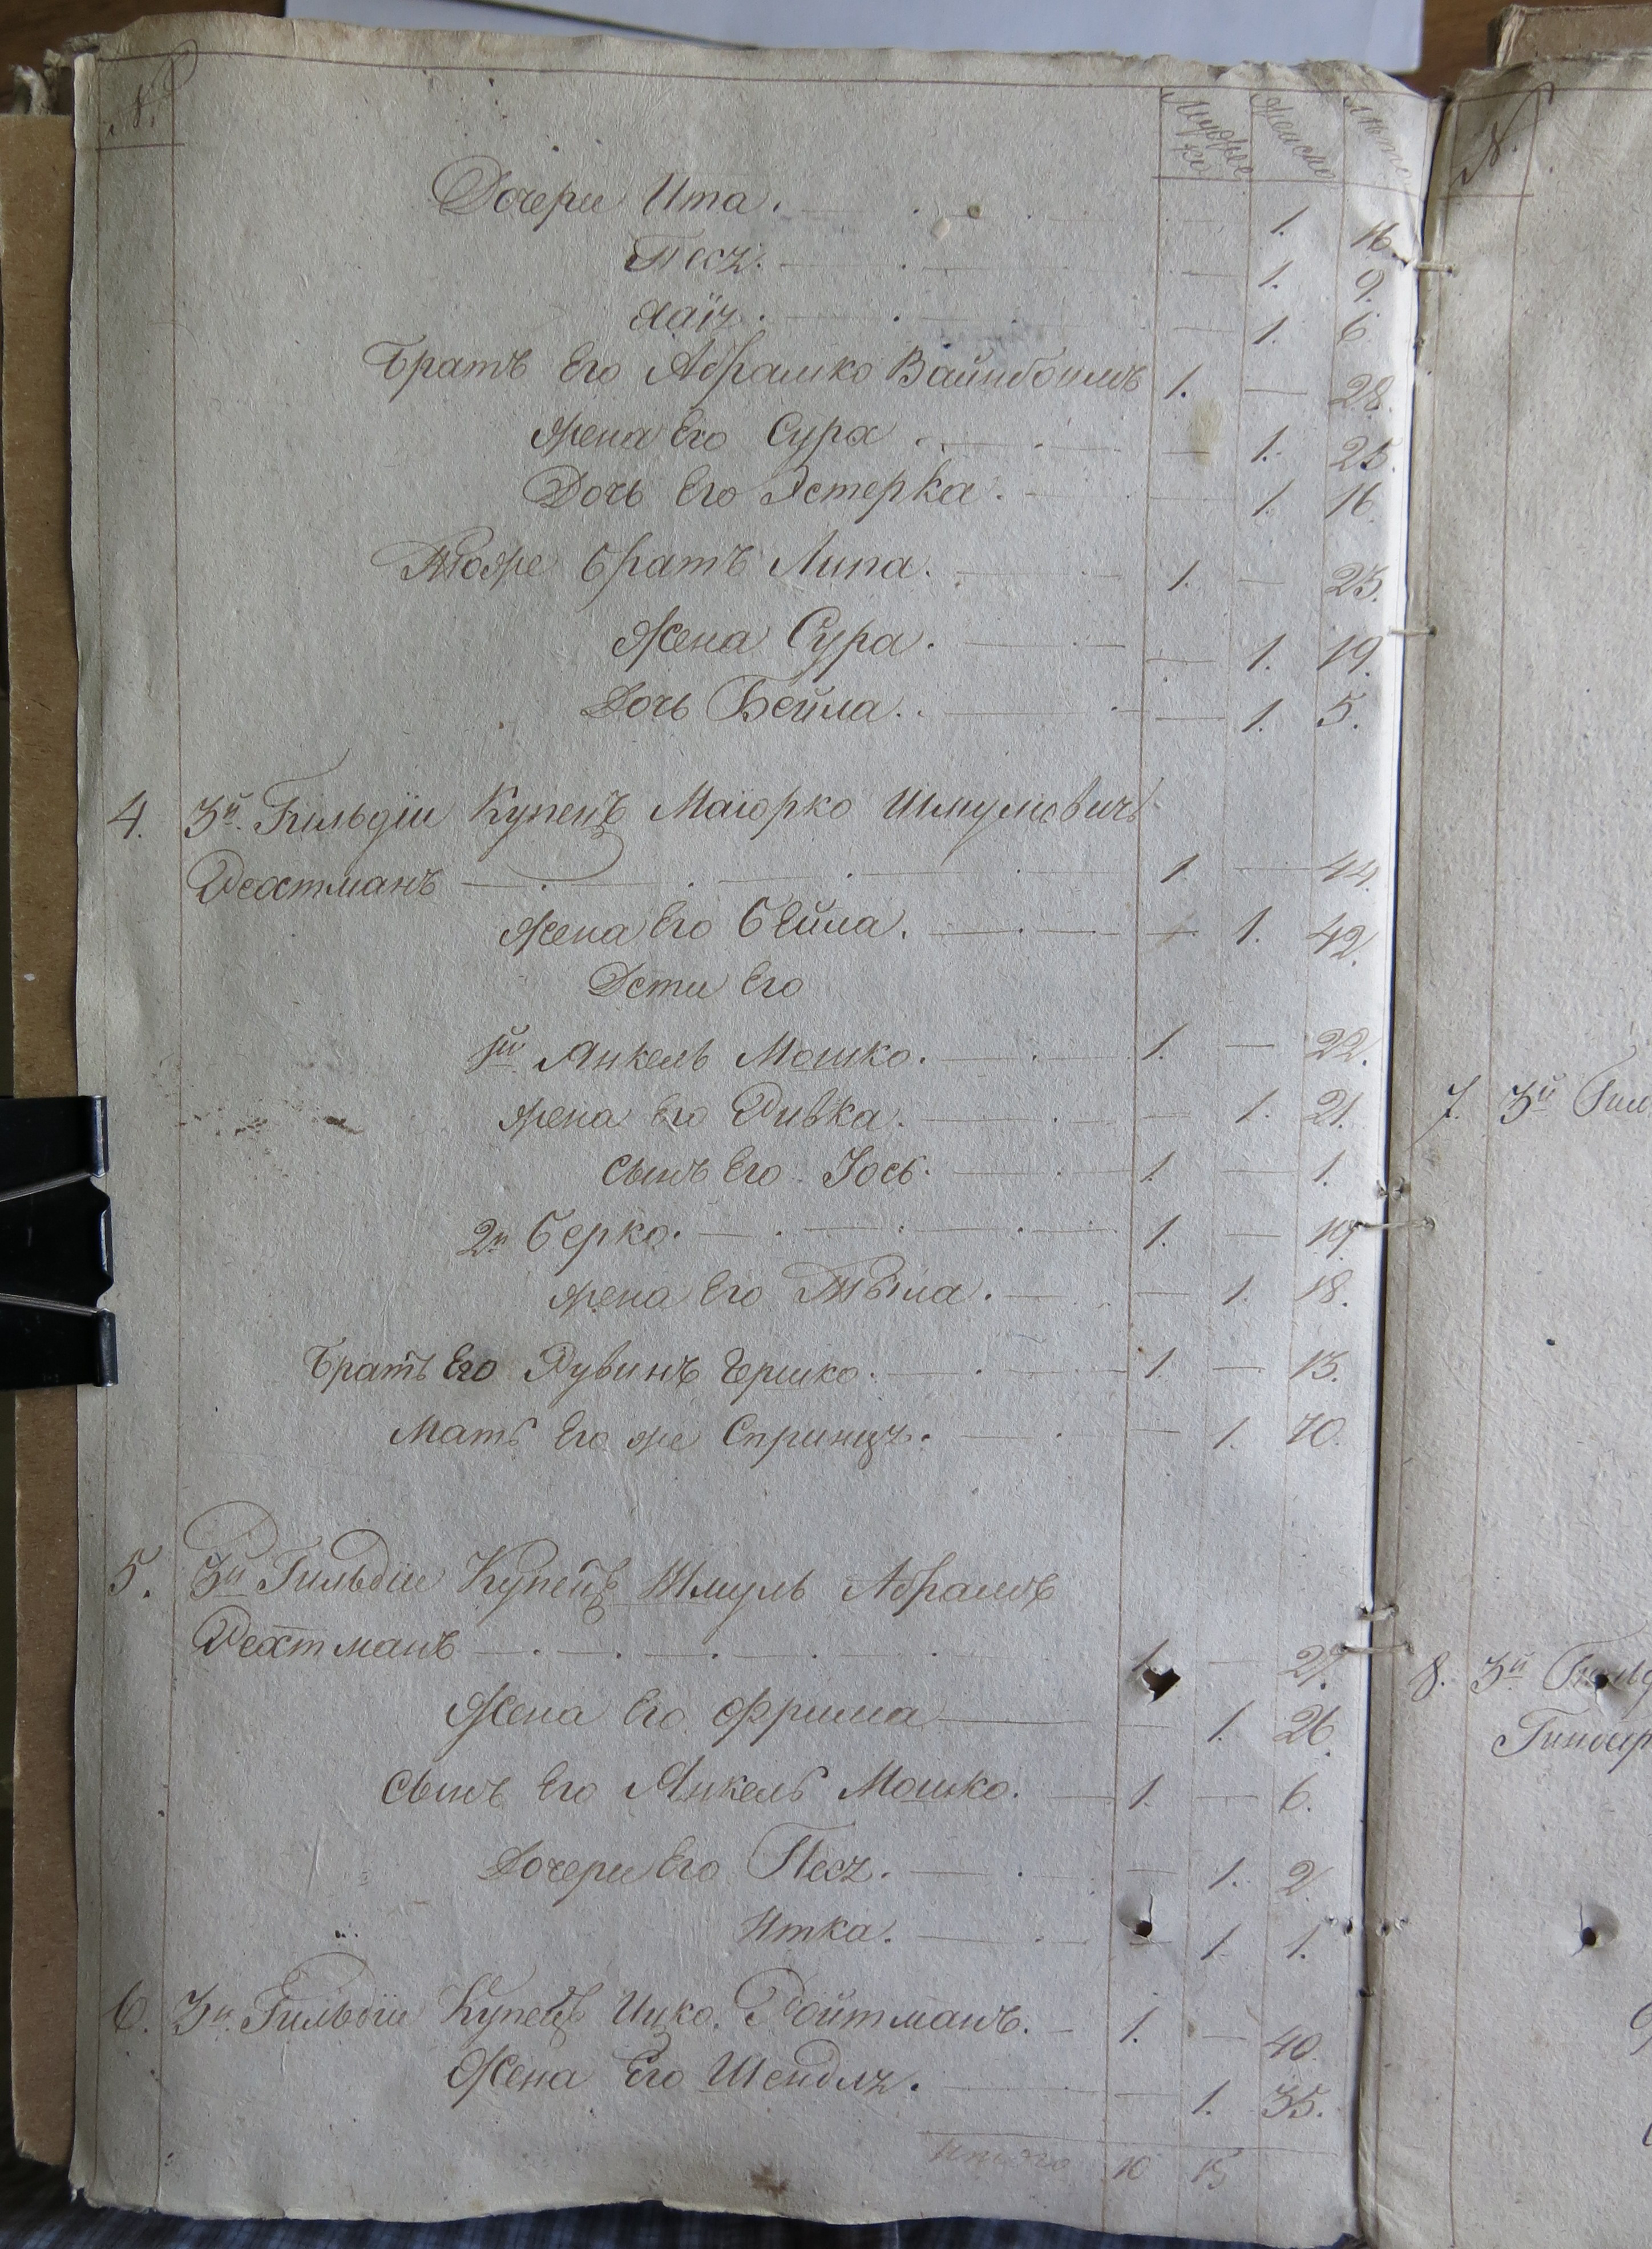 № Мужеско Женско Лѣта
Дочери Ита. — 1. 16.
Песя. — 1. 9.
Хаїя. — 1. 6.
Братъ Его Абрамко Вайнбоимъ 1. — 28.
Жена Его Сура. — 1. 25.
Дочь Его Эстерка. — 1. 16.
Тоже братъ Липа. 1. — 23.
Жена Сура. — 1. 19.
Дочь Бейла. — 1. 5.
4. 3й Гильдіи Купецъ Маіорко Шмулевичъ
Рехтманъ 1. — 44.
Жена Его Бейла. — 1. 42.
Дети Его
1й Янкель Мошко. 1. — 22.
Жена Его Ривка. — 1. 21.
Сынъ Его Іось. 1. — 1.
2й Берко. 1. — 19.
Жена Его — 1. 18.
Братъ Его Рувинъ Гершко. 1. — 13.
Мать Его же Спринця. — 1. 70.
5. 3й Гильдіи Купецъ Шмуль Абрамовъ
Рехтманъ 1. — 27.
Жена Его Фрима — 1. 26.
Сынъ Его Янкель Мошко. 1. — 6.
Дочери Его Песя. — 1. 2.
Итка. — 1. 1.
6. 3й Гильдіи Купецъ Ицко Ройтманъ. 1. — 40.
Жена Его Шендля. — 1. 35.
Итого 10 15
№
7. 3й Гил
8. 3й Гильд